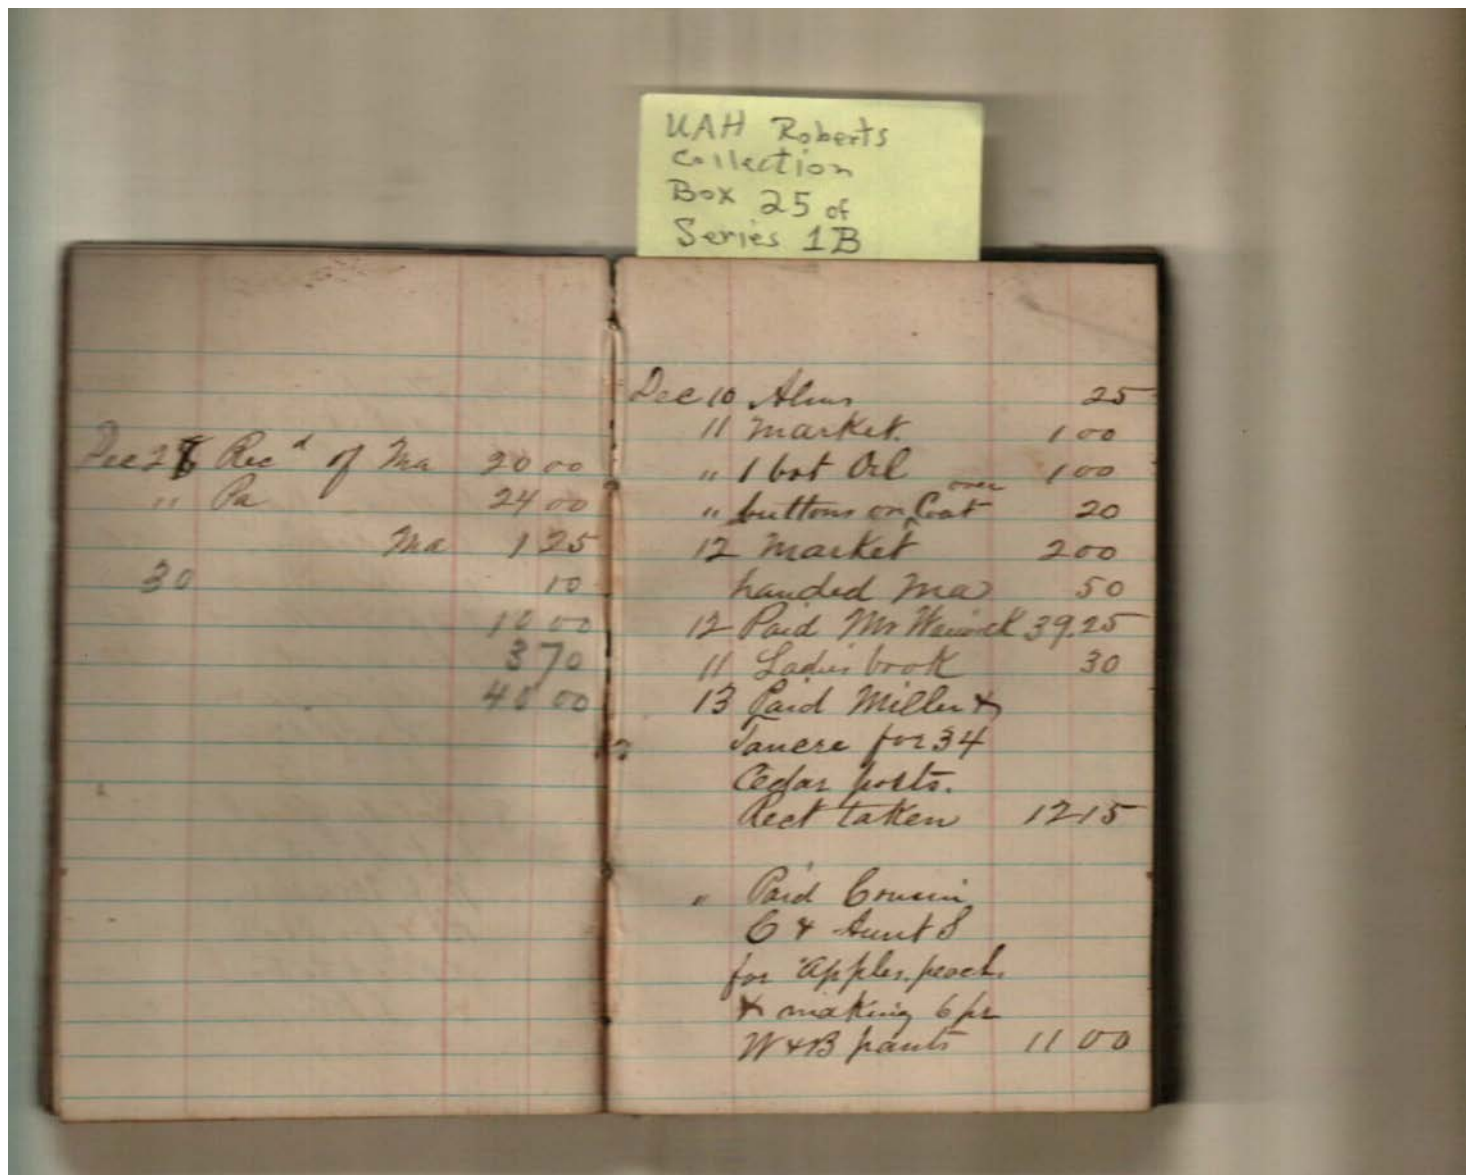 UAH Roberts
Collection
Box 25 of
Series 1B
Dec 2 Rec d of Ma 20 00
" Pa 24 00
Ma 1 25
30 10
10 00
3 70
40 00
Dec 10 Alms 25
11 Market. 1 00
" 1 bot Oil 1 00
over
" buttons on Coat 20
12 Market 2 00
handed Ma 50
12 Paid Mr 39.25
11 Ladies book 30
13 Paid Miller &
for 34
Cedar posts.
Rect taken 12 15
" Paid Cousin
C & Aunt S
for Apples, peach
& making 6 pr
W & B pants 11 00